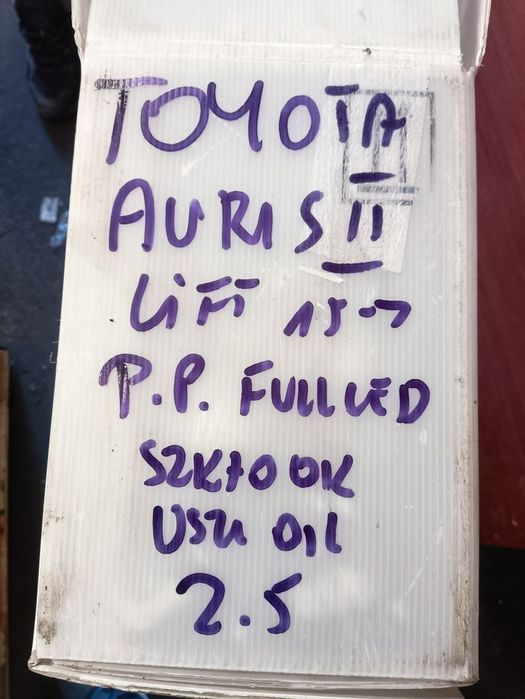 TOYOTA
AURIS II
LIFT 15->
P.P. FULL LED
SZKŁO OK
USZK OK
2.5